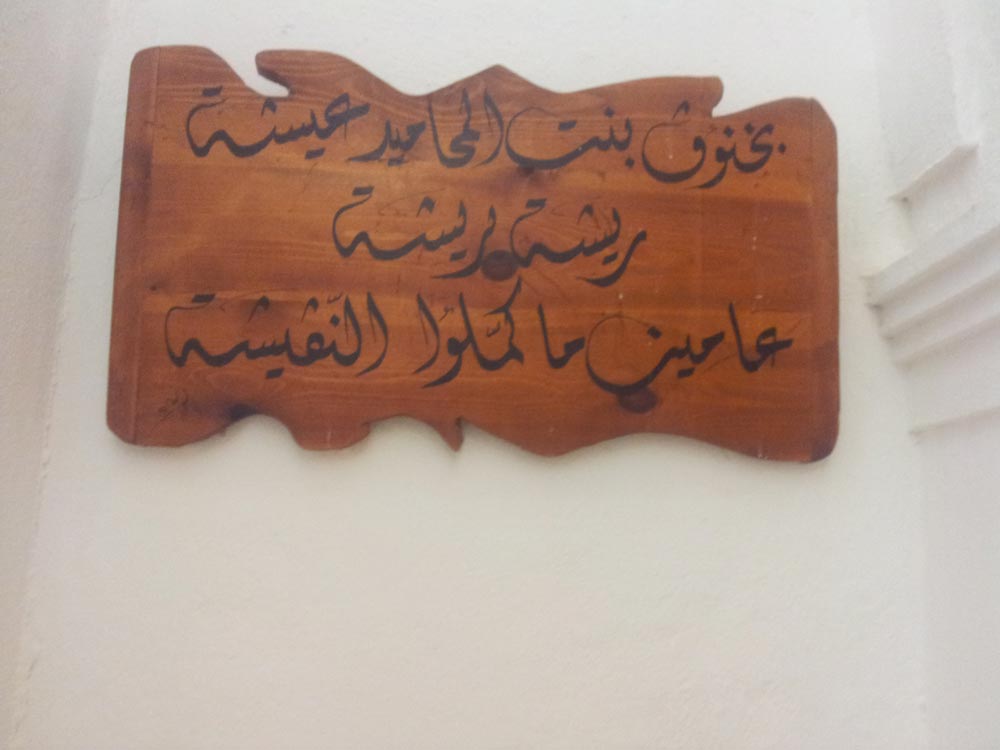 بخنوق بنت المحاميد عيشة
ريشة بريشة
عامين ما كمّلوا النّقيشة